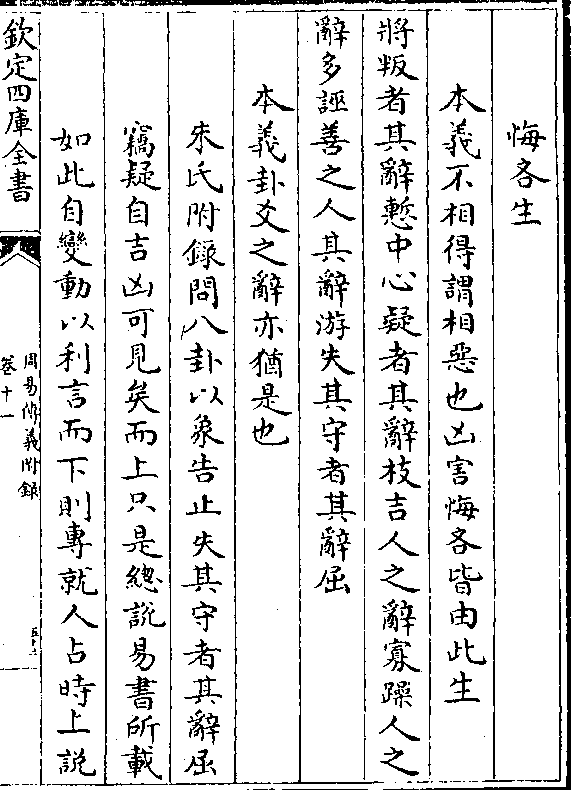 悔吝生
本義不相得謂相惡也凶害悔吝皆由此生
將叛者其辭慙中心疑者其辭枝吉人之辭寡躁人之
辭多誣善之人其辭游失其守者其辭屈
本義卦爻之辭亦猶是也
朱氏附錄問八卦以象告止失其守者其辭屈
竊疑自吉凶可見矣而上只是總說易書所載
如此自變動以利言而下則專就人占時上說
欽定四庫全書
周易傳義附錄
卷十一